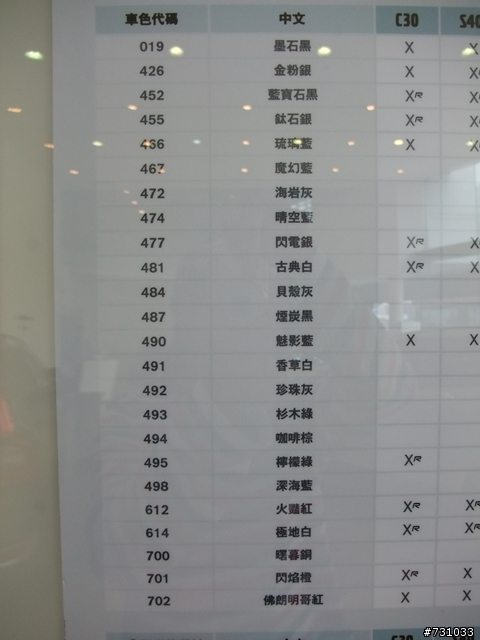 車色代碼 中文 C30 S40
019 墨石黑 X X
426 金粉銀 X X
452 藍寶石黑 XR X
455 鈦石銀 XR X
466 琉璃藍 X X
467 魔幻藍
472 海岩灰
474 晴空藍
477 閃電銀 XR X
481 古典白 XR X
484 貝殼灰
487 煙炭黑
490 魅影藍 X X
491 香草白
492 珍珠灰
493 杉木綠
494 咖啡棕
495 檸檬綠 XR
498 深海藍
612 火豔紅 XR XR
614 極地白 XR XR
700 曙暮銅
701 閃焰橙 XR X
702 佛朗明哥紅 X X
#731033